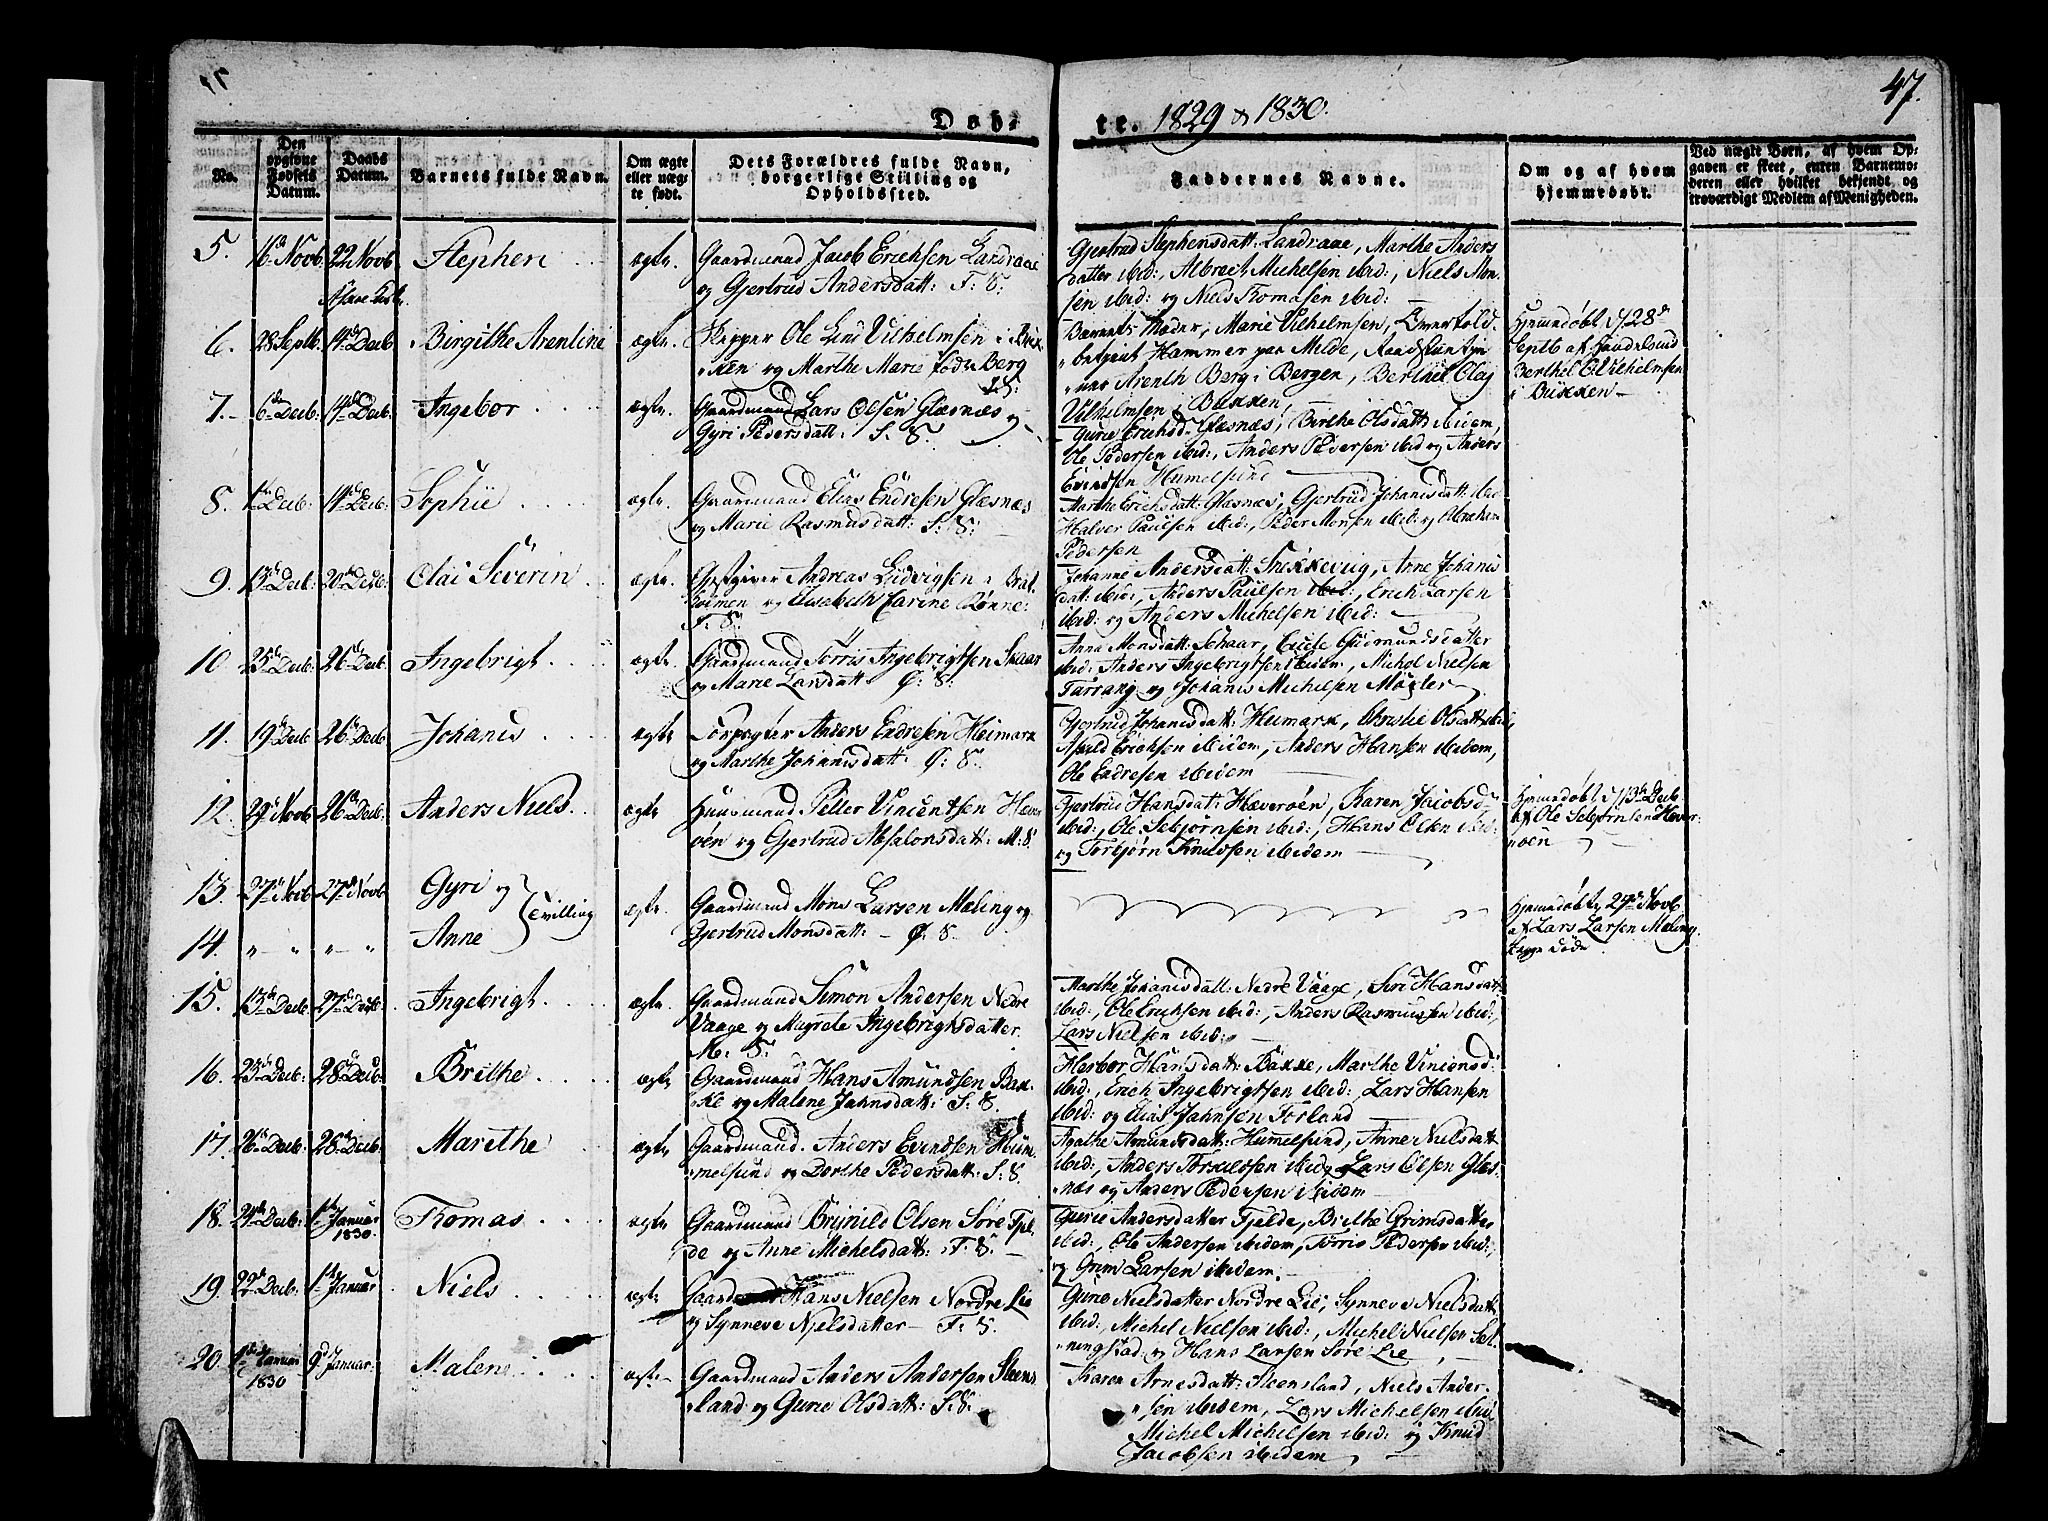 47.
Døb-
te. 1829 & 1830.
No.
Den
opgivne
Fødsels
Datum.
Daabs
Datum.
Barnets fulde Navn.
Om ægte
eller uæg-
te født.
Dets Forældres fulde Navn,
borgerlige Stilling og
Opholdssted.
Faddernes Navne.
Om og af hvem
hjemmedøbt.
Ved uægte Børn, af hvem Op-
gaven er skeet, enten Barnemo-
deren eller hvilket bekjendt og
troværdigt Medlem af Menigheden.
5. 16de Novb 22 Novb Stephen ægte. Gaardmand Jacob Erichsen Landraae
og Gjertrud Andersdatt: F: S.
Gjertrud Stephensdatt: Landraae, Marthe Anders
datter ibid:, Albreit Michelsen ibid:, Niels Mon-
sen ibid: og Niels Tomasen ibid:
6. 28 Septb. 14de Decb. Birgithe Arentine ægte. Skipper Ole Lud Vilhelmsen i Bux
ken og Marthe Marie fød Berg
S:
Barnets Moder, Marie Vilhelmsen,
betjent Hammer paa Milde,
Arenth Berg i Bergen, Berthel Olai
Vilhelmsen i Buxken,
Hjemmedøbt d. 28de
Septb af
Berthel Vilhelmsen
i Buxken
7. 6de Decb. 14de Decb. Ingebor ægte. Gaardmand Lars Olsen Glæsnæs og
Gyri Pedersdatt: S. S.
Gurie Erichsd: Glæsnæs, Birthe Olsdatt ibidem,
Ole Pedersen ibid:, Anders Pedersen ibid og Anders
Evindsen Humelsund
8. 1de Decb: 14de Decb: Sophie ægte. Gaardmand Elias Endresen Glæsnæs
og Marie Rasmusdatt: S: S:
Marthe Erichsdatt: Glæsnæs, Gjertrud Johanisdatt: ibid
Halver Paulsen ibid:, Peder Monsen ibid: og Abraham
Pedersen
9. 13de Decb: 20de Decb: Olai Severin ægte. Gjestgiver Andreas Ludvigsen i Brat
holmen og Elisabeth Carine Rønne:
F: S.
Johanne Andersdatt: Snekkevig, Anne Johanis
datt: ibid:, Anders Paulsen ibid:, Erich Larsen
ibid: og Anders Michelsen ibid:
10. 25de Decb: 26de Decb: Ingebrigt ægte. Gaardmand Torris Ingebrigtsen Skaar
og Marie Larsdatt: Ø: S:
Anna Monsdatt: Schaar, Gudmundsdatter
ibid: Anders Ingebrigtsen ibidem, Michel Nielsen
Tarrang og Johanis Michelsen Møgster
11. 19de Decb 26de Decb: Johanis ægte Anders Endresen Heimark
og Marthe Johanisdatt: Ø: S.
Gjertrud Johanisdatt: Heimark, Olsdatt ibid:,
Erichsen ibidem, Anders Hansen ibidem,
Ole Endresen ibidem
12. 29de Novb 26de Decb: Anders Niels. ægte Huusmand Peller Vincentsen Hever
øen og Gjertrud Absalonsdatt: M: S
Gjertrud Hansdat: Hæverøen, Karen Jacobsd:
ibid:, Ole Sebjørnsen ibid:, Hans Olsen ibid:
og Torbjørn Knudsen ibidem
Hjemmedøbt d. 13de Decb.
af Ole Sebjørnsen Hever-
øen
13. 27de Novb 27de Novb Gyri og
14. " — " " — " Anne
Tvilling ægte. Gaardmand Mons Larsen Mæling og
Gjertrud Monsdatt: — Ø: S.
Hjemmedøbt 27de Novb
af Lars Larsen Mæling.
begge døde
15. 13de Decb. 27de Decb: Ingebrigt ægte Gaardmand Simon Andersen Nedre
Vaage og Magrete Ingebrigtsdatter.
M: S.
Marthe Johanisdatt: Nedre Vaage, Siri Hansdatt
ibid:, Ole Erichsen ibid:, Anders Rasmussen ibid:,
Lars Nielsen ibid:
16. 23de Decb: 28de Decb: Brithe ægte Gaardmand Hans Amundsen Bak-
ke og Malene Jahnsdatt: S: S.
Herbor Hansdatt: Bakke, Marthe Vinionsd:
ibid:, Erich Ingebrigtsen ibid:, Lars Hansen
ibid: og Elias Jahnsen Torland
17. 26de Decb: 28de Decb: Marethe ægte Gaardmand. Anders Evindsen Hum-
melsund og Dorthe Pedersdatt: S: S.
Agathe Amundsdatt: Humelsund, Anne Nielsdatt
ibid:, Anders Torkildsen ibid, Lars Olsen Glæs-
næs og Anders Pedersen ibidem
18. 24de Decb: 1de Januar
1830. Tomas ægte Gaardmand Brynild Olsen Søre Fjel-
de og Anne Michelsdatt: F: S.
Gurie Andersdatter Fjelde, Birthe Grimsdatter
ibid:, Ole Andersen ibidem, Torris Pedersen ibid:,
og Grim Larsen ibidem.
19. 22de Decb: 1de Januar Niels ægte Gaardmand Hans Nielsen Nordre Lie
og Synneve Nielsdatter — F: S.
Gurie Nielsdatter Nordre Lie, Synneve Nielsdatt
ibid:, Michel Nielsen ibid:, Michel Nielsen Sel-
ningstad og Hans Larsen Søre Lie
20. 1de Januar
1830 9de Januar. Malene ægte Gaardmand Anders Andersen Steens
land og Gurie Olsdatt: S: S.
Karen Arnesdatt: Steensland, Niels Ander-
sen ibidem, Lars Michelsen ibid
Michel Michelsen ibid: og Knud
Jacobsen ibidem